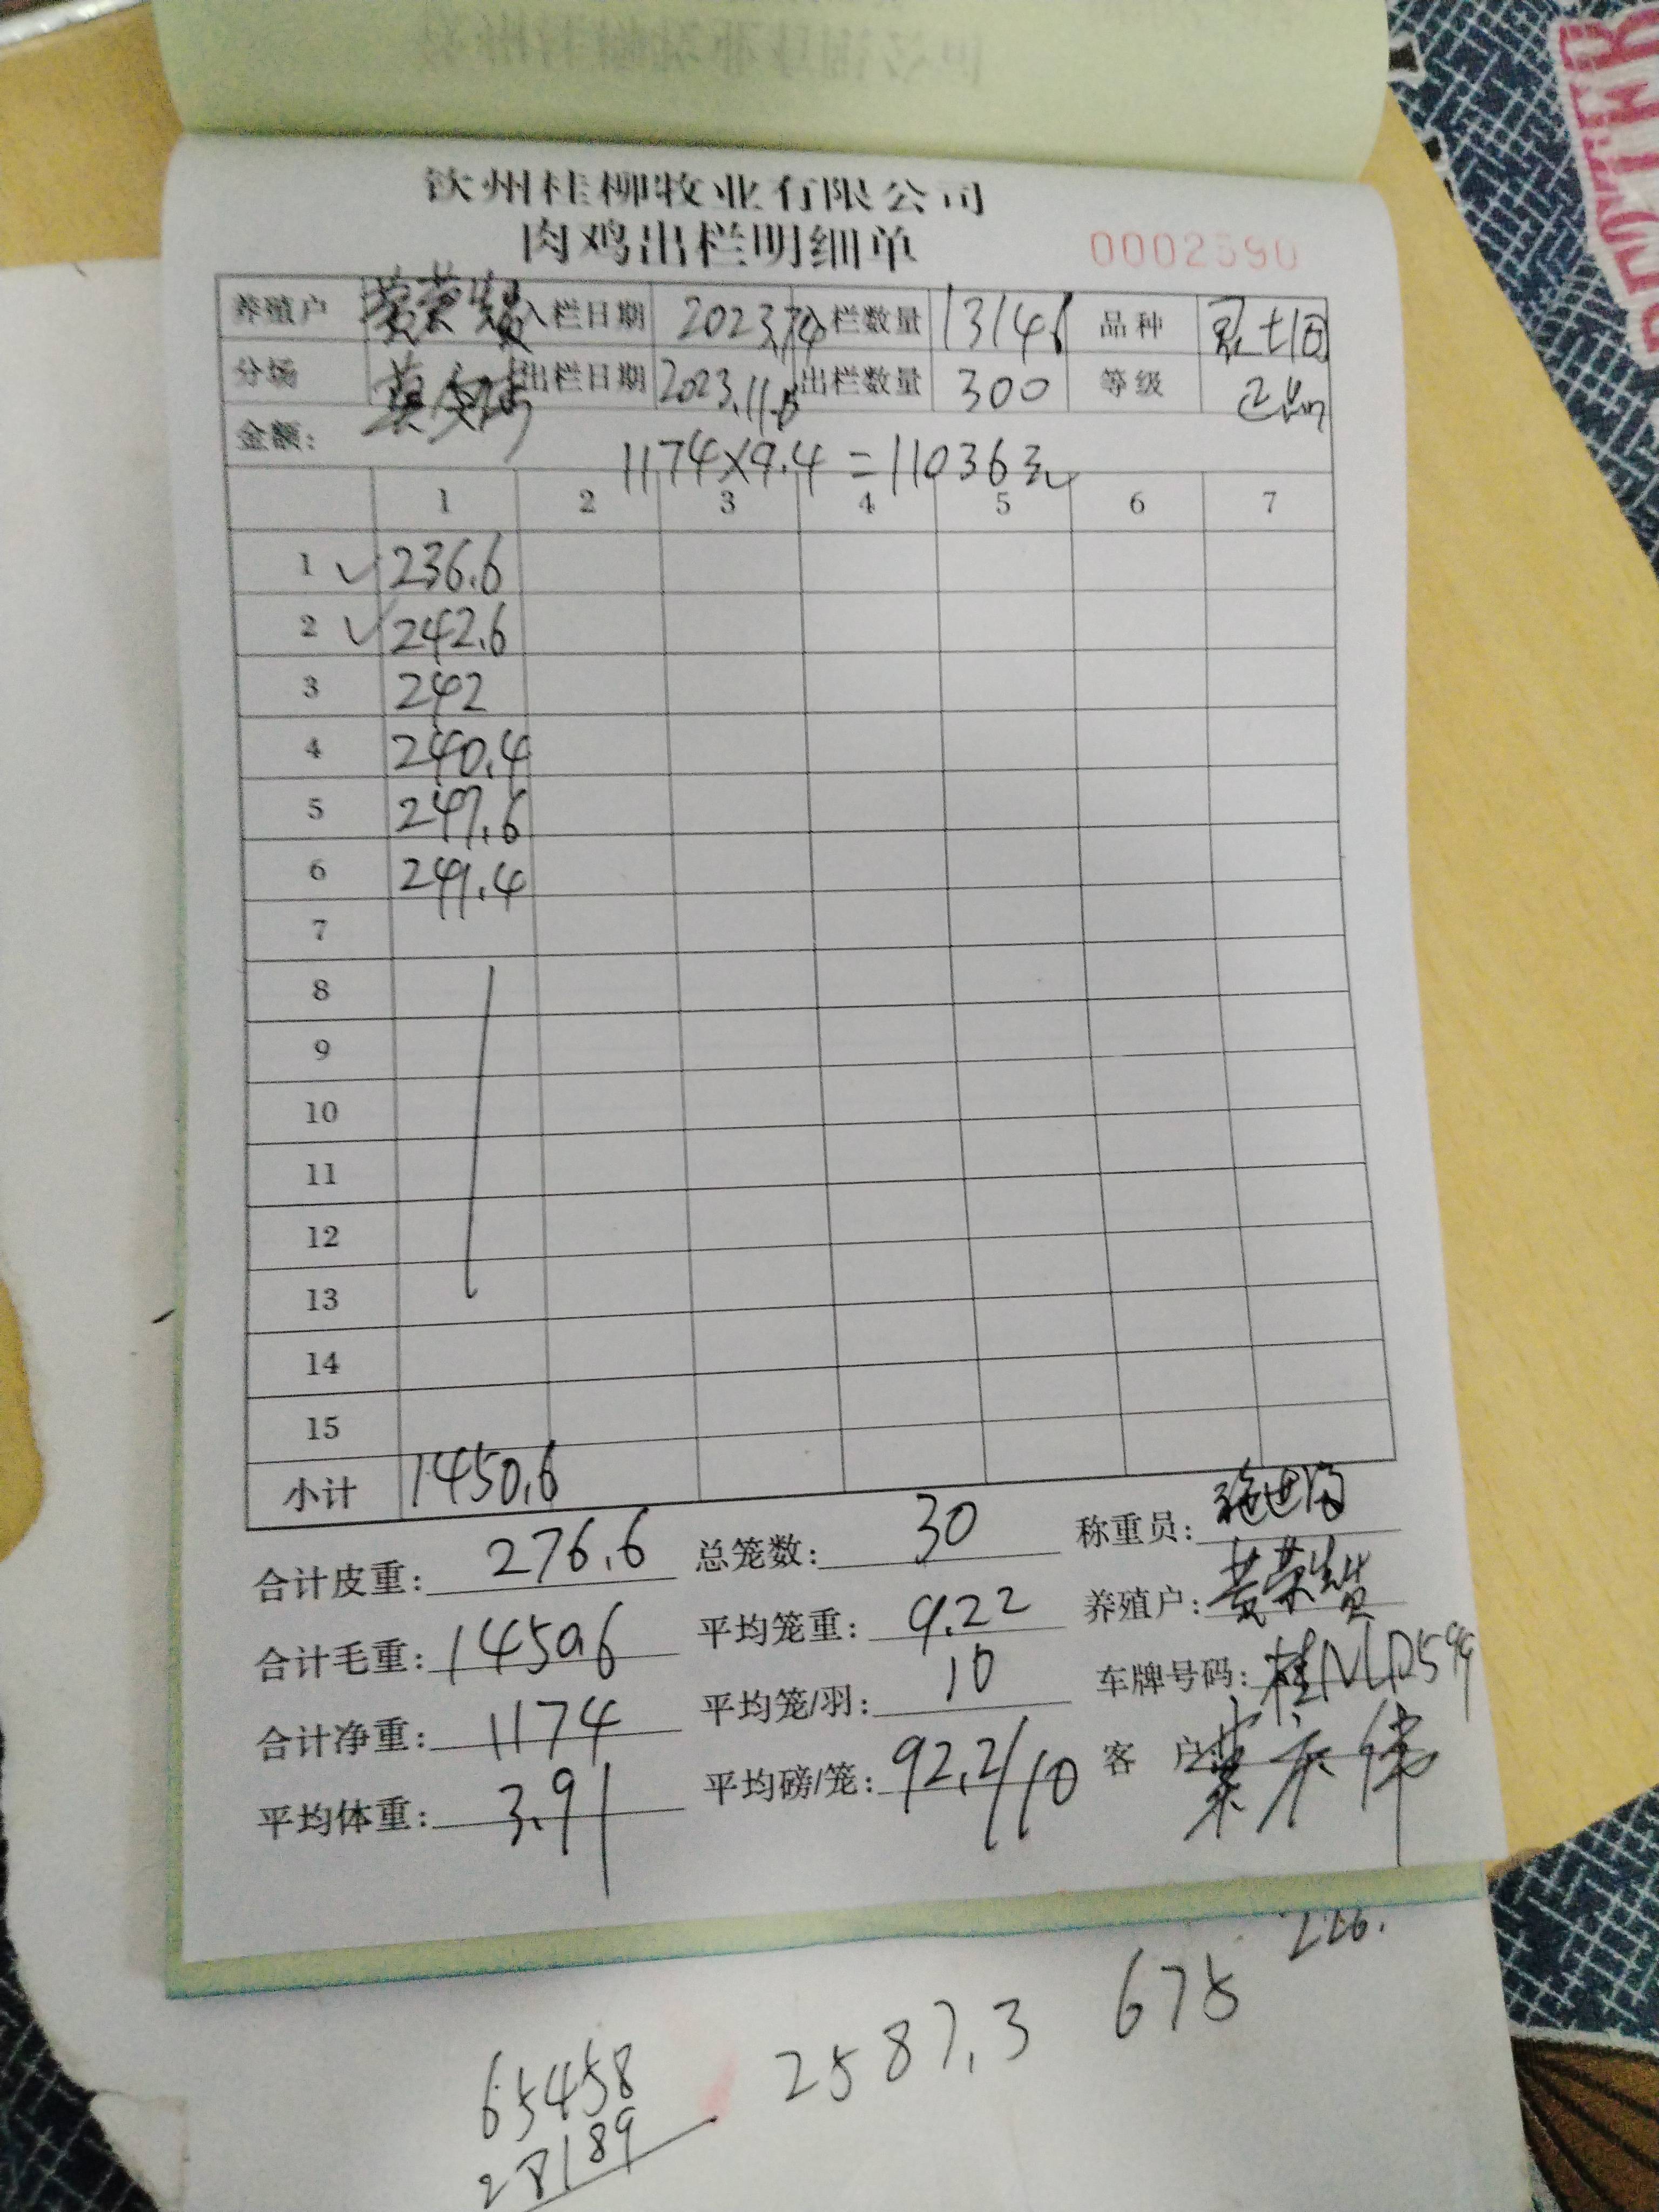 钦州桂柳牧业有限公司
肉鸡出栏明细单 0002590
养殖户 黄荣贤 入栏日期 2023.7.4 入栏数量 13146 品种 土
分场 出栏日期 2023.11. 出栏数量 300 等级 正品
金额: 1174×9.4=11036元
1 2 3 4 5 6 7
1 ✓ 236.6
2 ✓ 242.6
3 242
4 240.4
5 247.6
6 241.4
7
8
9
10
11
12
13
14
15
小计 1450.6
合计皮重: 276.6 总笼数: 30 称重员:
合计毛重: 1450.6 平均笼重: 9.22 养殖户: 黄荣贤
合计净重: 1174 平均笼/羽: 10 车牌号码: 桂
平均体重: 3.91 平均磅/笼: 92.2/10 客户
226.
65458 2587.3 675
28189